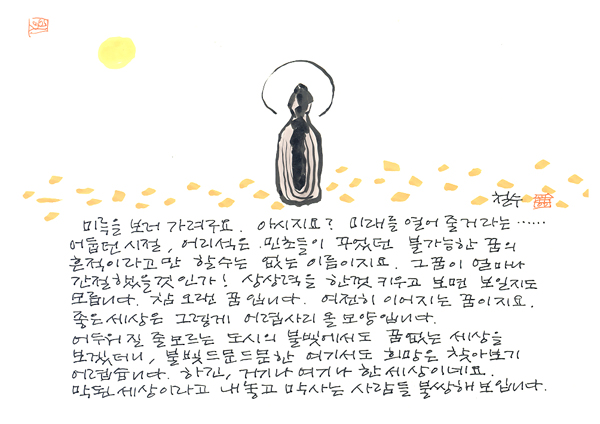 철수
미륵을 보러 가려구요. 아시지요? 미래를 열어 줄거라는……
어둡던 시절, 어리석은 민초들이 꾸었던 불가능한 꿈의
흔적이라고만 할수는 없는 이름이지요. 그 꿈이 얼마나
간절했을것인가! 상상력을 한껏 키우고 보면 보일지도
모릅니다. 참 오랜 꿈입니다. 여전히 이어지는 꿈이지요.
좋은세상은 그렇게 어렵사리 올 모양입니다.
어두워질 줄 모르는 도시의 불빛에서도 꿈없는 세상을
보겠더니, 불빛 드문드문한 여기서도 희망은 찾아보기
어렵습니다. 하긴, 거기나 여기나 한 세상이네요.
막된 세상이라고 내놓고 막사는 사람들 불쌍해 보입니다.